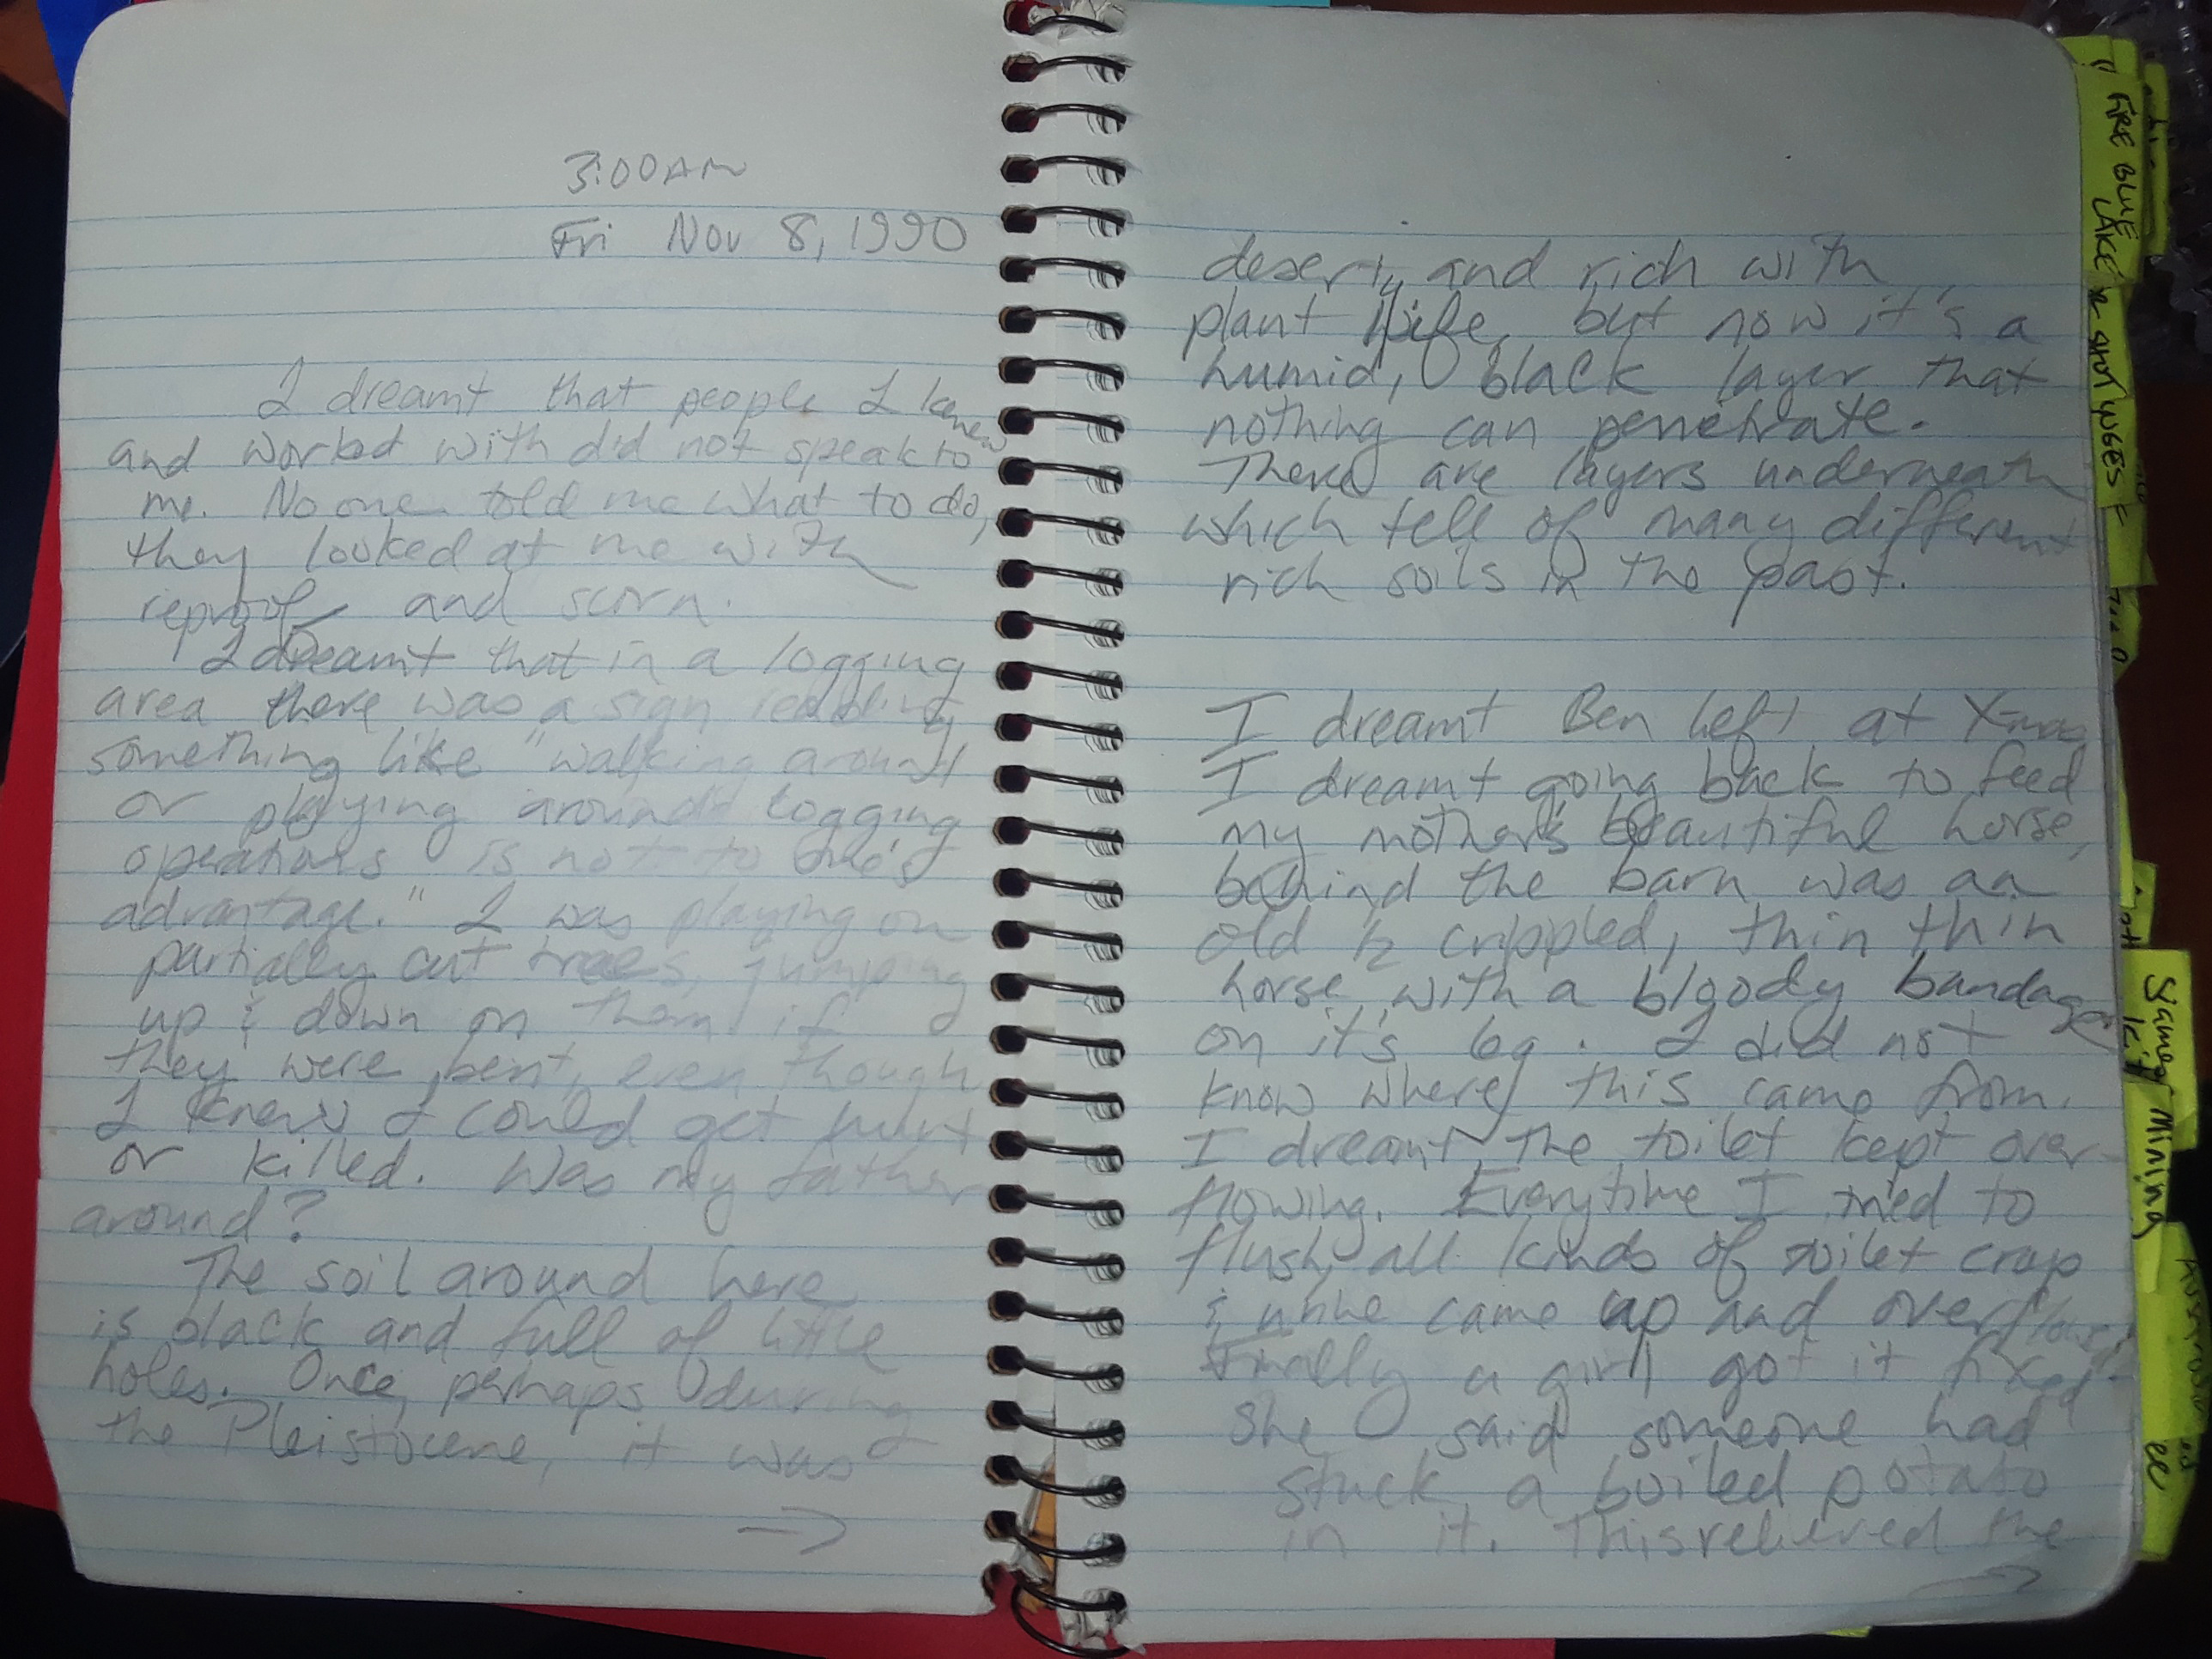 3:00AM
Fri Nov 8, 1990
I dreamt that people I knew
and worked with did not speak to
me. No one told me what to do,
they looked at me with
reproof and scorn.
I dreamt that in a logging
area there was a sign reading
something like "walking around
or playing around logging
operations is not to one's
advantage." I was playing on
partially cut trees, jumping
up & down on them if
they were bent, even though
I knew I could get hurt
or killed. Was my father
around?
The soil around here
is black and full of little
holes. Once, perhaps during
the Pleistocene, it was
→
desert, and rich with
plant life, but now it's a
humid, black layer that
nothing can penetrate.
There are layers underneath
which tell of many different
rich soils in the past.
I dreamt Ben left at X-mas
I dreamt going back to feed
my mother's beautiful horse,
behind the barn was an
old ½ crippled, thin thin
horse, with a bloody bandage
on it's leg. I did not
know where this came from.
I dreamt the toilet kept over-
flowing. Everytime I tried to
flush, all kinds of toilet crap
& urine came up and overflowed.
Finally a girl got it fixed.
She said someone had
stuck a boiled potato
in it. This relieved the
→
FIRE BLUE
LAKE
Mining